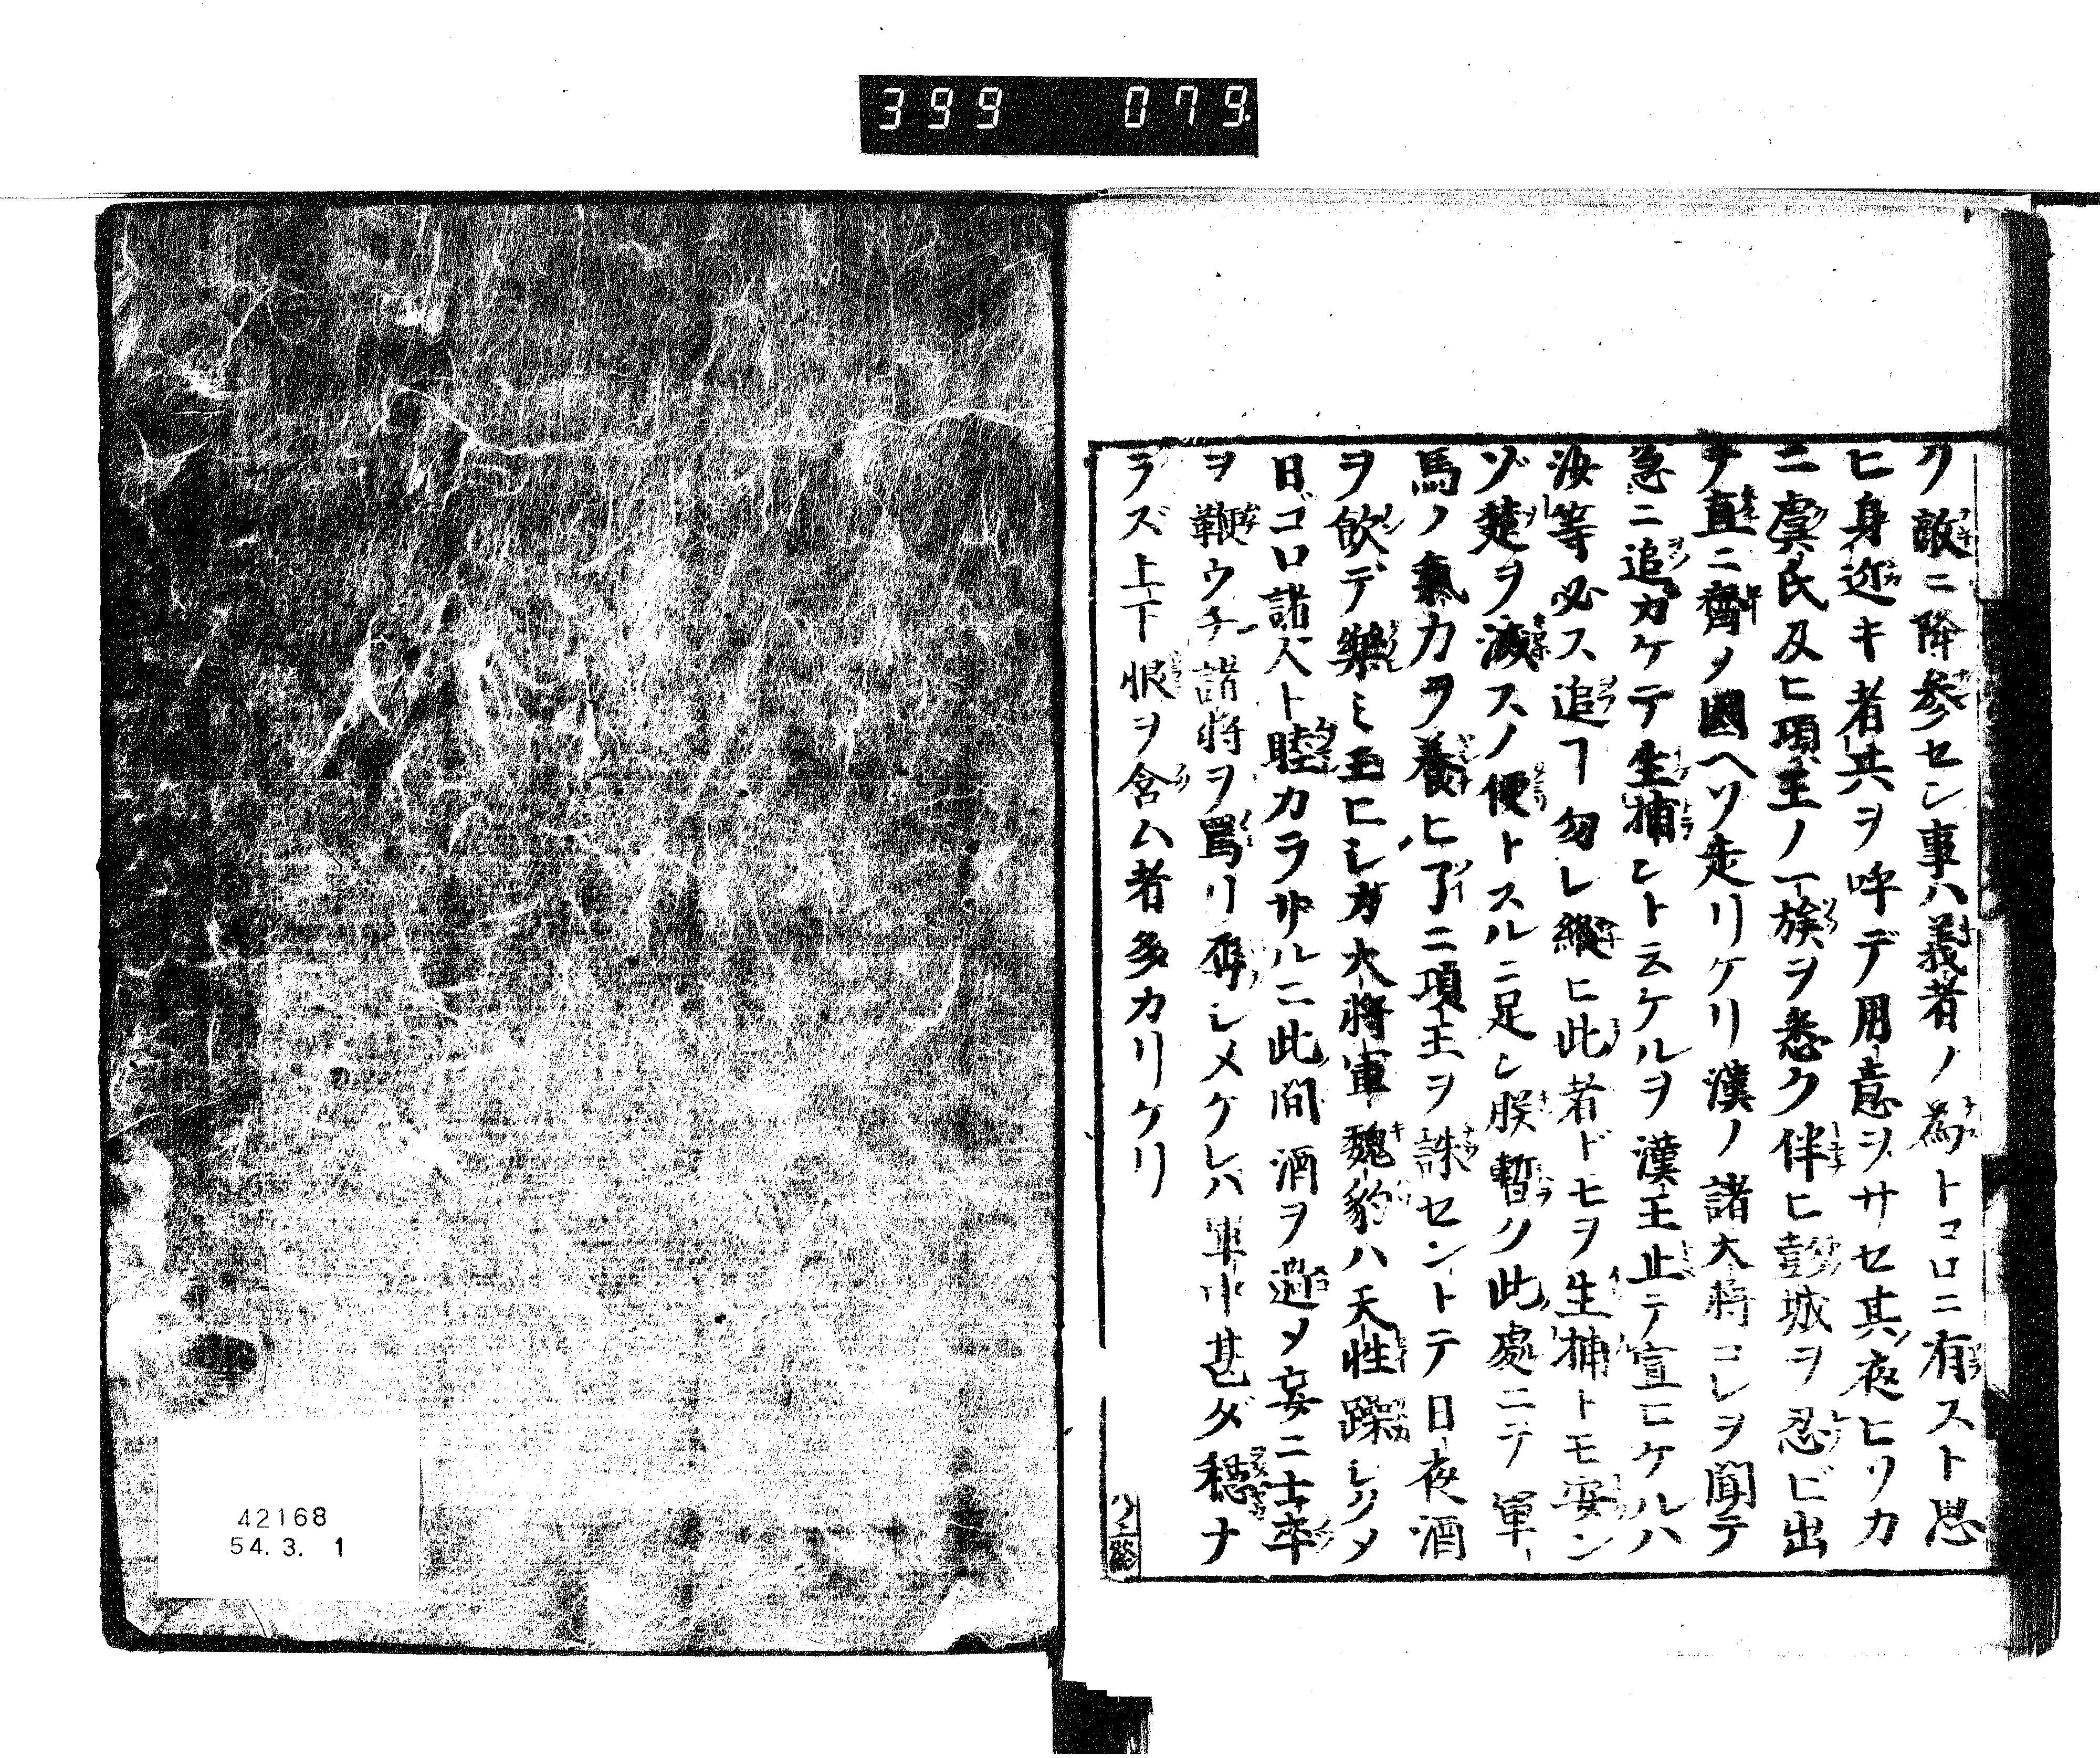 399 079
ク敵ニ降参セン事ハ義者ノ為トコロニ有スト思
ヒ身近キ者共ヲ呼デ用意ヲサセ其夜ヒソカ
ニ虞氏及ヒ項王ノ一族ヲ悉ク伴ヒ彭城ヲ忍ビ出
テ直ニ齊ノ國ヘソ走リケリ漢ノ諸大將コレヲ聞テ
急ニ追カケテ生捕ント云ケルヲ漢王止テ宣ヒケルハ
汝等必ス追フ勿レ縱ヒ此者ドモヲ生捕トモ安ン
ゾ楚ヲ滅スノ便トスルニ足ン朕暫ク此處ニテ軍
馬ノ氣力ヲ養ヒ了ニ項王ヲ誅セントテ日夜酒
ヲ飲デ樂ミ玉ヒシガ大將軍魏豹ハ天性躁シクメ
日ゴロ諸人ト睦カラサルニ此間酒ヲ過メ妄ニ士卒
ヲ鞭ウチ諸將ヲ罵リ辱シメケレバ軍中甚ダ穏ナ
ラズ上下恨ヲ含ム者多カリケリ
42168
54. 3. 1